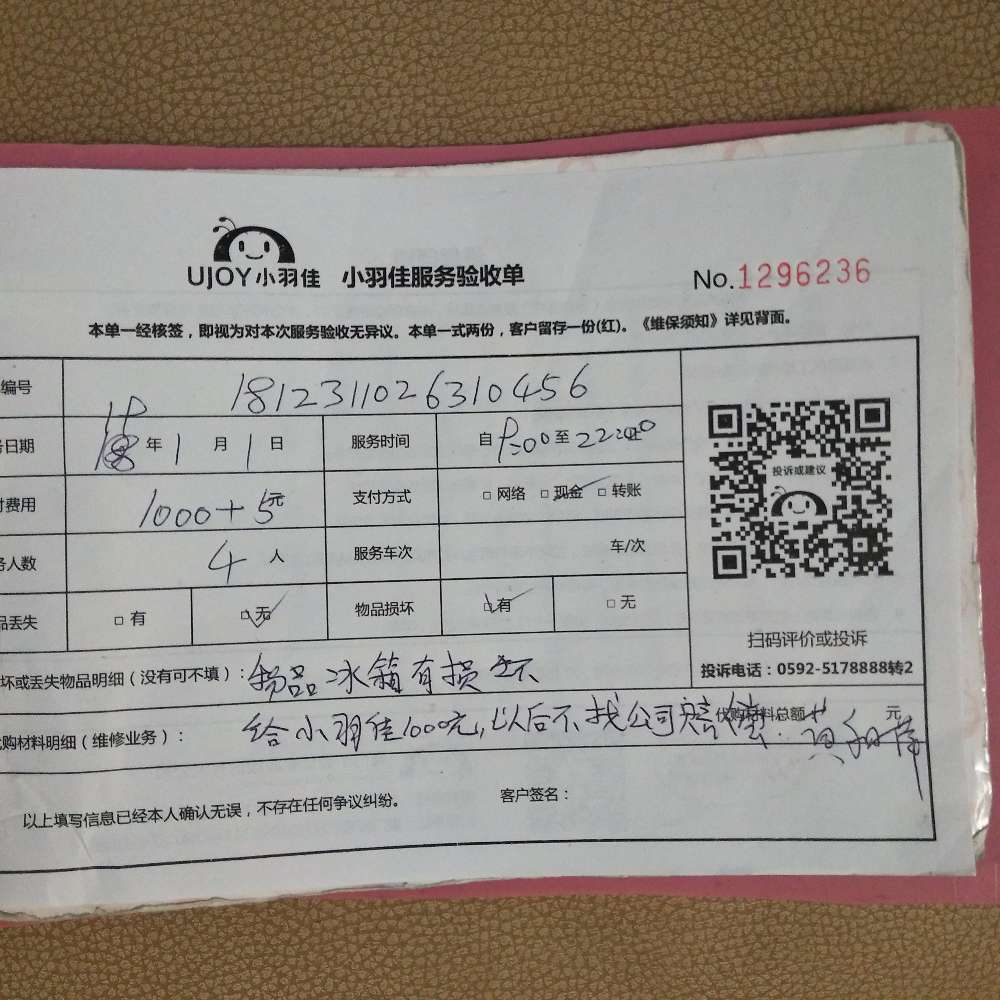 UJOY小羽佳 小羽佳服务验收单 No.1296236
本单一经核签，即视为对本次服务验收无异议。本单一式两份，客户留存一份(红)。《维保须知》详见背面。
编号 1812311026310456
日期 年 1 月 1 日 服务时间 自 9:00 至 22:20
费用 1000+5元 支付方式 □ 网络 □ 现金 □ 转账
人数 4 人 服务车次 车/次
丢失 □ 有 □ 无 物品损坏 □ 有 □ 无
投诉或建议
扫码评价或投诉
投诉电话：0592-5178888转2
坏或丢失物品明细（没有可不填）：物品冰箱有损坏
购材料明细（维修业务）： 给小羽佳1000元，以后不找公司赔偿. 代购材料总额 元
以上填写信息已经本人确认无误，不存在任何争议纠纷。 客户签名：